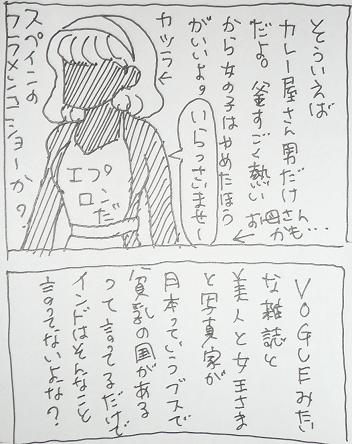 そういえば
カレー屋さん男だけ
だよ。釜すごく熱い
から女の子はやめたほう
がいいよ。
お母さん
かも…
←
カツラ←
いらっさいませ～
エプ
ロン
だ
スペインの
フラメンコショーか?
VOGUEみたい
な雑誌と
美人と女王さま
と写真家が
月本っていうブスで
貧乳の国がある
って言ってるだけで
インドはそんなこと
言ってないよな?